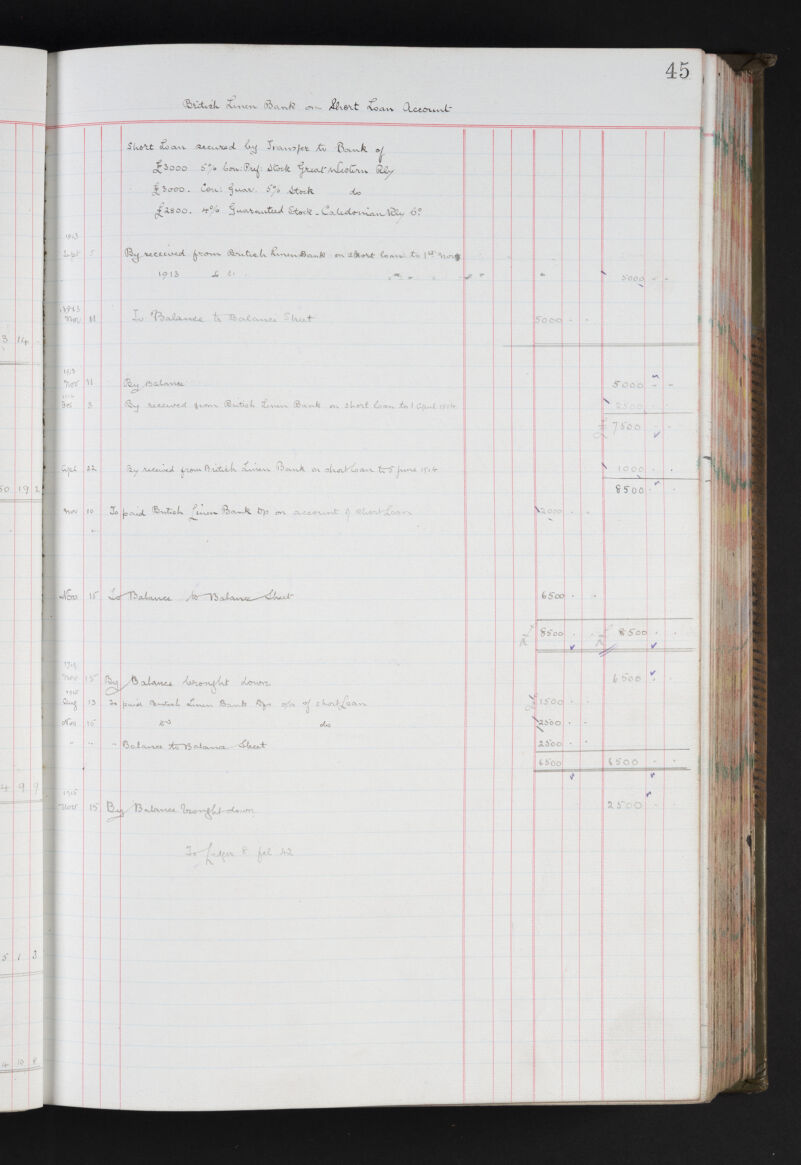 45
British Linen Bank on Short Loan Account
Short Loan secured by Transfer to Bank of
£3000 5% Con: Pref: Stock Great Western Rly
£3000. Con: Guar. 5% Stock do
£2800. 4% Guaranteed Stock - Caledonian Rly Co
1913
Sept 5 By received from British Linen Bank on Short loan to 1st Nov
1913 5000 - -
1913
Nov To Balance to Balance Sheet 5000 - -
3 14
1913
Nov By Balance 5000 - -
3 By received from British Linen Bank on short loan to 1 April 1914 2500 - -
£ 7500 - -
Apl 22 By received from British Linen Bank on short loan to 5 June 1914 1000 - -
8500 - -
50 19 2
Nov 10 To paid British Linen Bank on account of Short Loan 2000 - -
Nov 15 To Balance to Balance Sheet 6500 - -
£ 8500 - - £ 8500 - -
Nov 15 By Balance brought down 6500 - -
1915
Aug 13 To paid British Linen Bank o/a of short Loan 1500 - -
Nov 15 do do 2500 - -
" " " Balance to Balance Sheet 2500 - -
6500 6500 - -
4 9 9
1915
Nov 15 By Balance brought down 2500 - -
To Ledger 8 fol 42
5 1 3
4 10 8